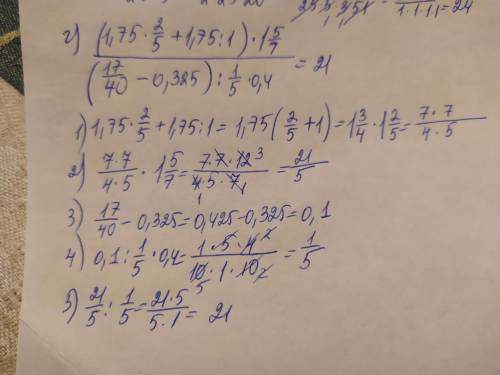 25·5·3·51 / 1·1·11 = 24
г) (1,75 · 2/5 + 1,75 : 1) · 1 5/7 / (17/40 − 0,325) : 1/5 · 0,4 = 21
1) 1,75 · 2/5 + 1,75 : 1 = 1,75 (2/5 + 1) = 1 3/4 · 1 2/5 = 7 · 7 / 4 · 5
2) 7·7 / 4·5 · 1 5/7 = 7·7·12 3 / 4·5·7 1 1 = 21/5
3) 17/40 − 0,325 = 0,425 − 0,325 = 0,1
4) 0,1 : 1/5 · 0,4 = 1·5·4 2 / 10·1·10 5 2 = 1/5
5) 21/5 : 1/5 = 21·5 / 5·1 = 21